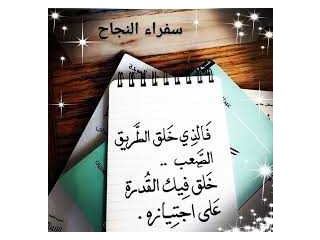 سفراء النجاح
فَالذِي خَلق الطَّريق
الصَّعب ..
خَلق فِيكَ القُدرة
عَلى اجتِيَازه .